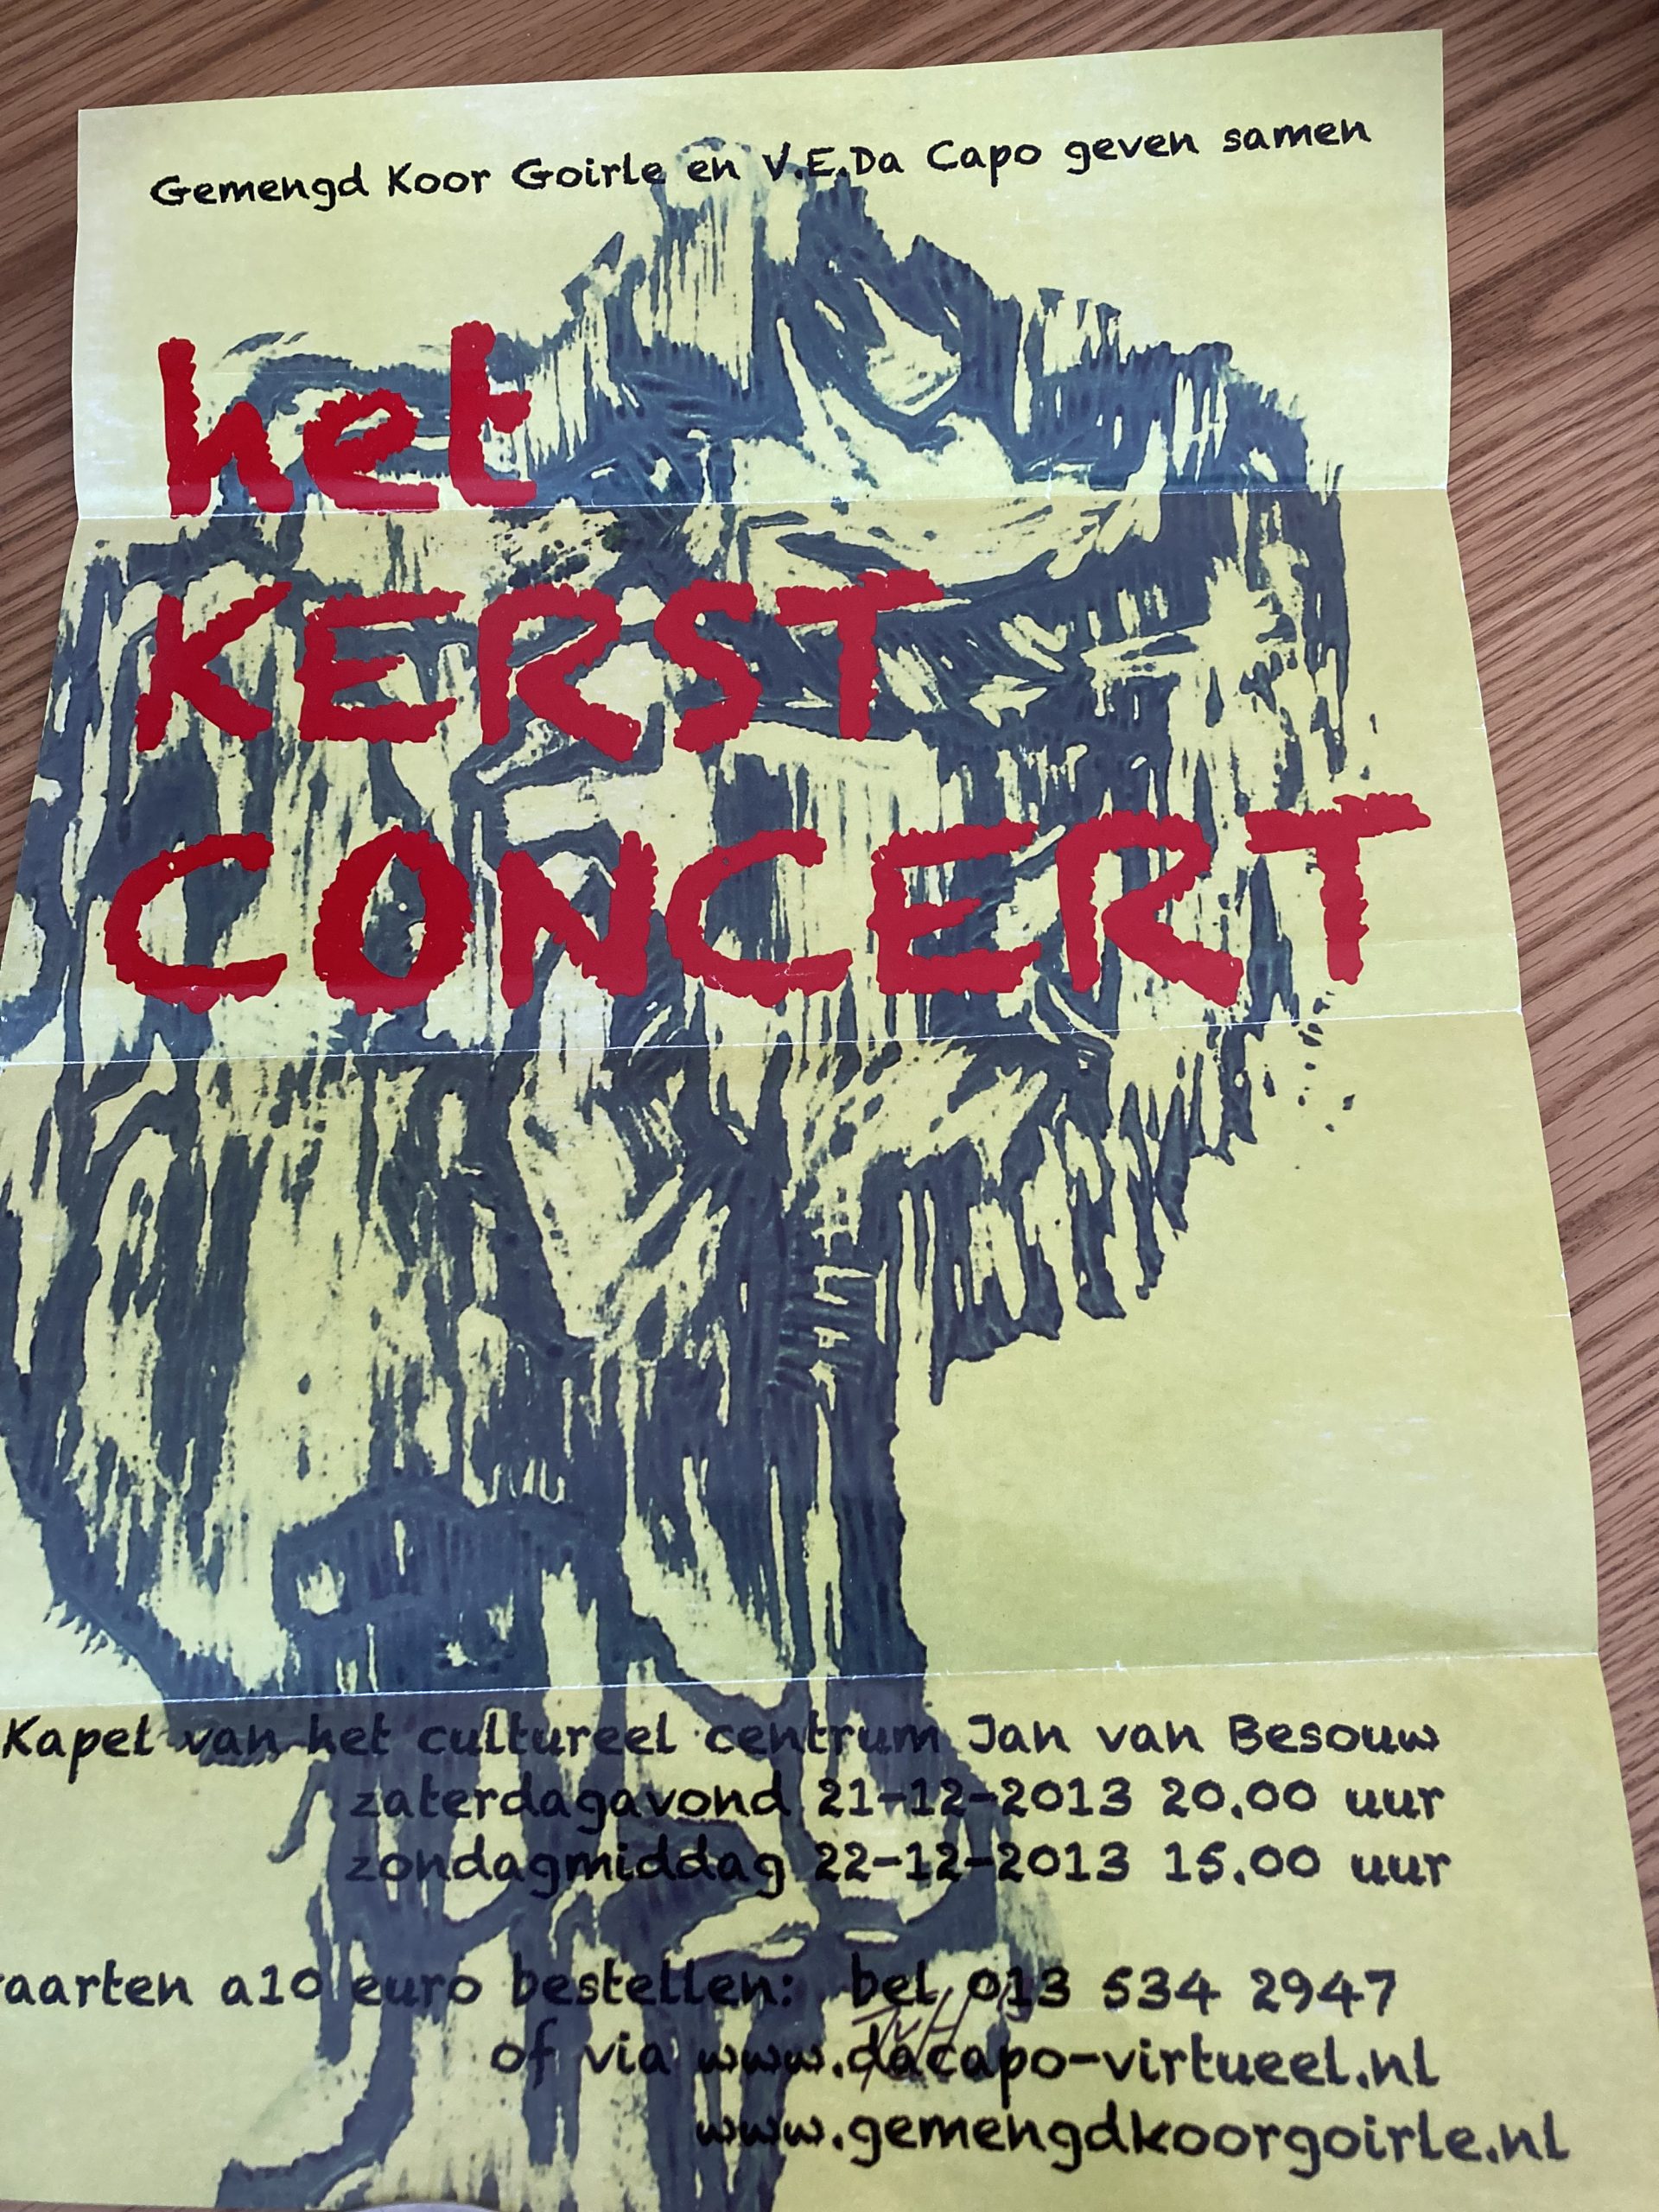 Gemengd Koor Goirle en V.E.Da Capo geven samen
het
KERST
CONCERT
Kapel van het cultureel centrum Jan van Besouw
zaterdagavond 21-12-2013 20.00 uur
zondagmiddag 22-12-2013 15.00 uur
aarten a10 euro bestellen: bel 013 534 2947
of via www.dacapo-virtueel.nl
www.gemengdkoorgoirle.nl